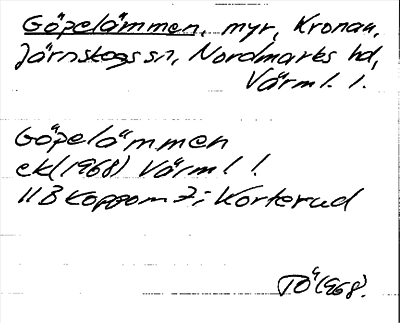 Göpelämmen, myr, Kronan,
Järnskogs sn, Nordmarks hd,
Värml. l.
Göpelämmen
ek (1968) Värml l.
11B Koppom 7i Korterud
TÖ (1968).